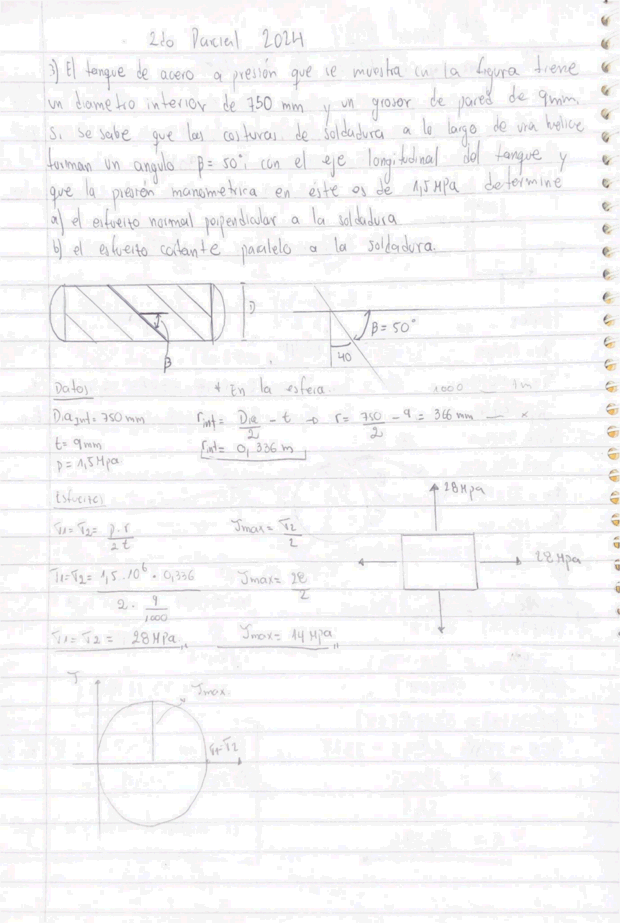 2do Parcial 2024
3) El tanque de acero a presión que se muestra en la figura tiene
un diametro interior de 750 mm y un grosor de pared de 9mm.
Si se sabe que las costuras de soldadura a lo largo de una helice
forman un angulo β = 50°; con el eje longitudinal del tanque y
que la presión manometrica en este es de 1,5 MPa determine
a) el esfuerzo normal perpendicular a la soldadura
b) el esfuerzo cortante paralelo a la soldadura.
D
β
β = 50°
40
Datos
* En la esfera.
1000 — 1m
Dia Int = 750 mm
rint = Dia/2 - t → r = 750/2 - 9 = 366 mm — x
t = 9mm
rint = 0,336 m
p = 1,5 Mpa
Esfuerzos
28 Mpa
σ1 = σ2 = p.r/2t
Jmax = σ2/2
28 Mpa
σ1 = σ2 = 1,5.10⁶ . 0,336 / 2. 9/1000
Jmax = 28/2
σ1 = σ2 = 28 MPa,,
Jmax = 14 Mpa,,
J
Jmax.
σ1=σ2